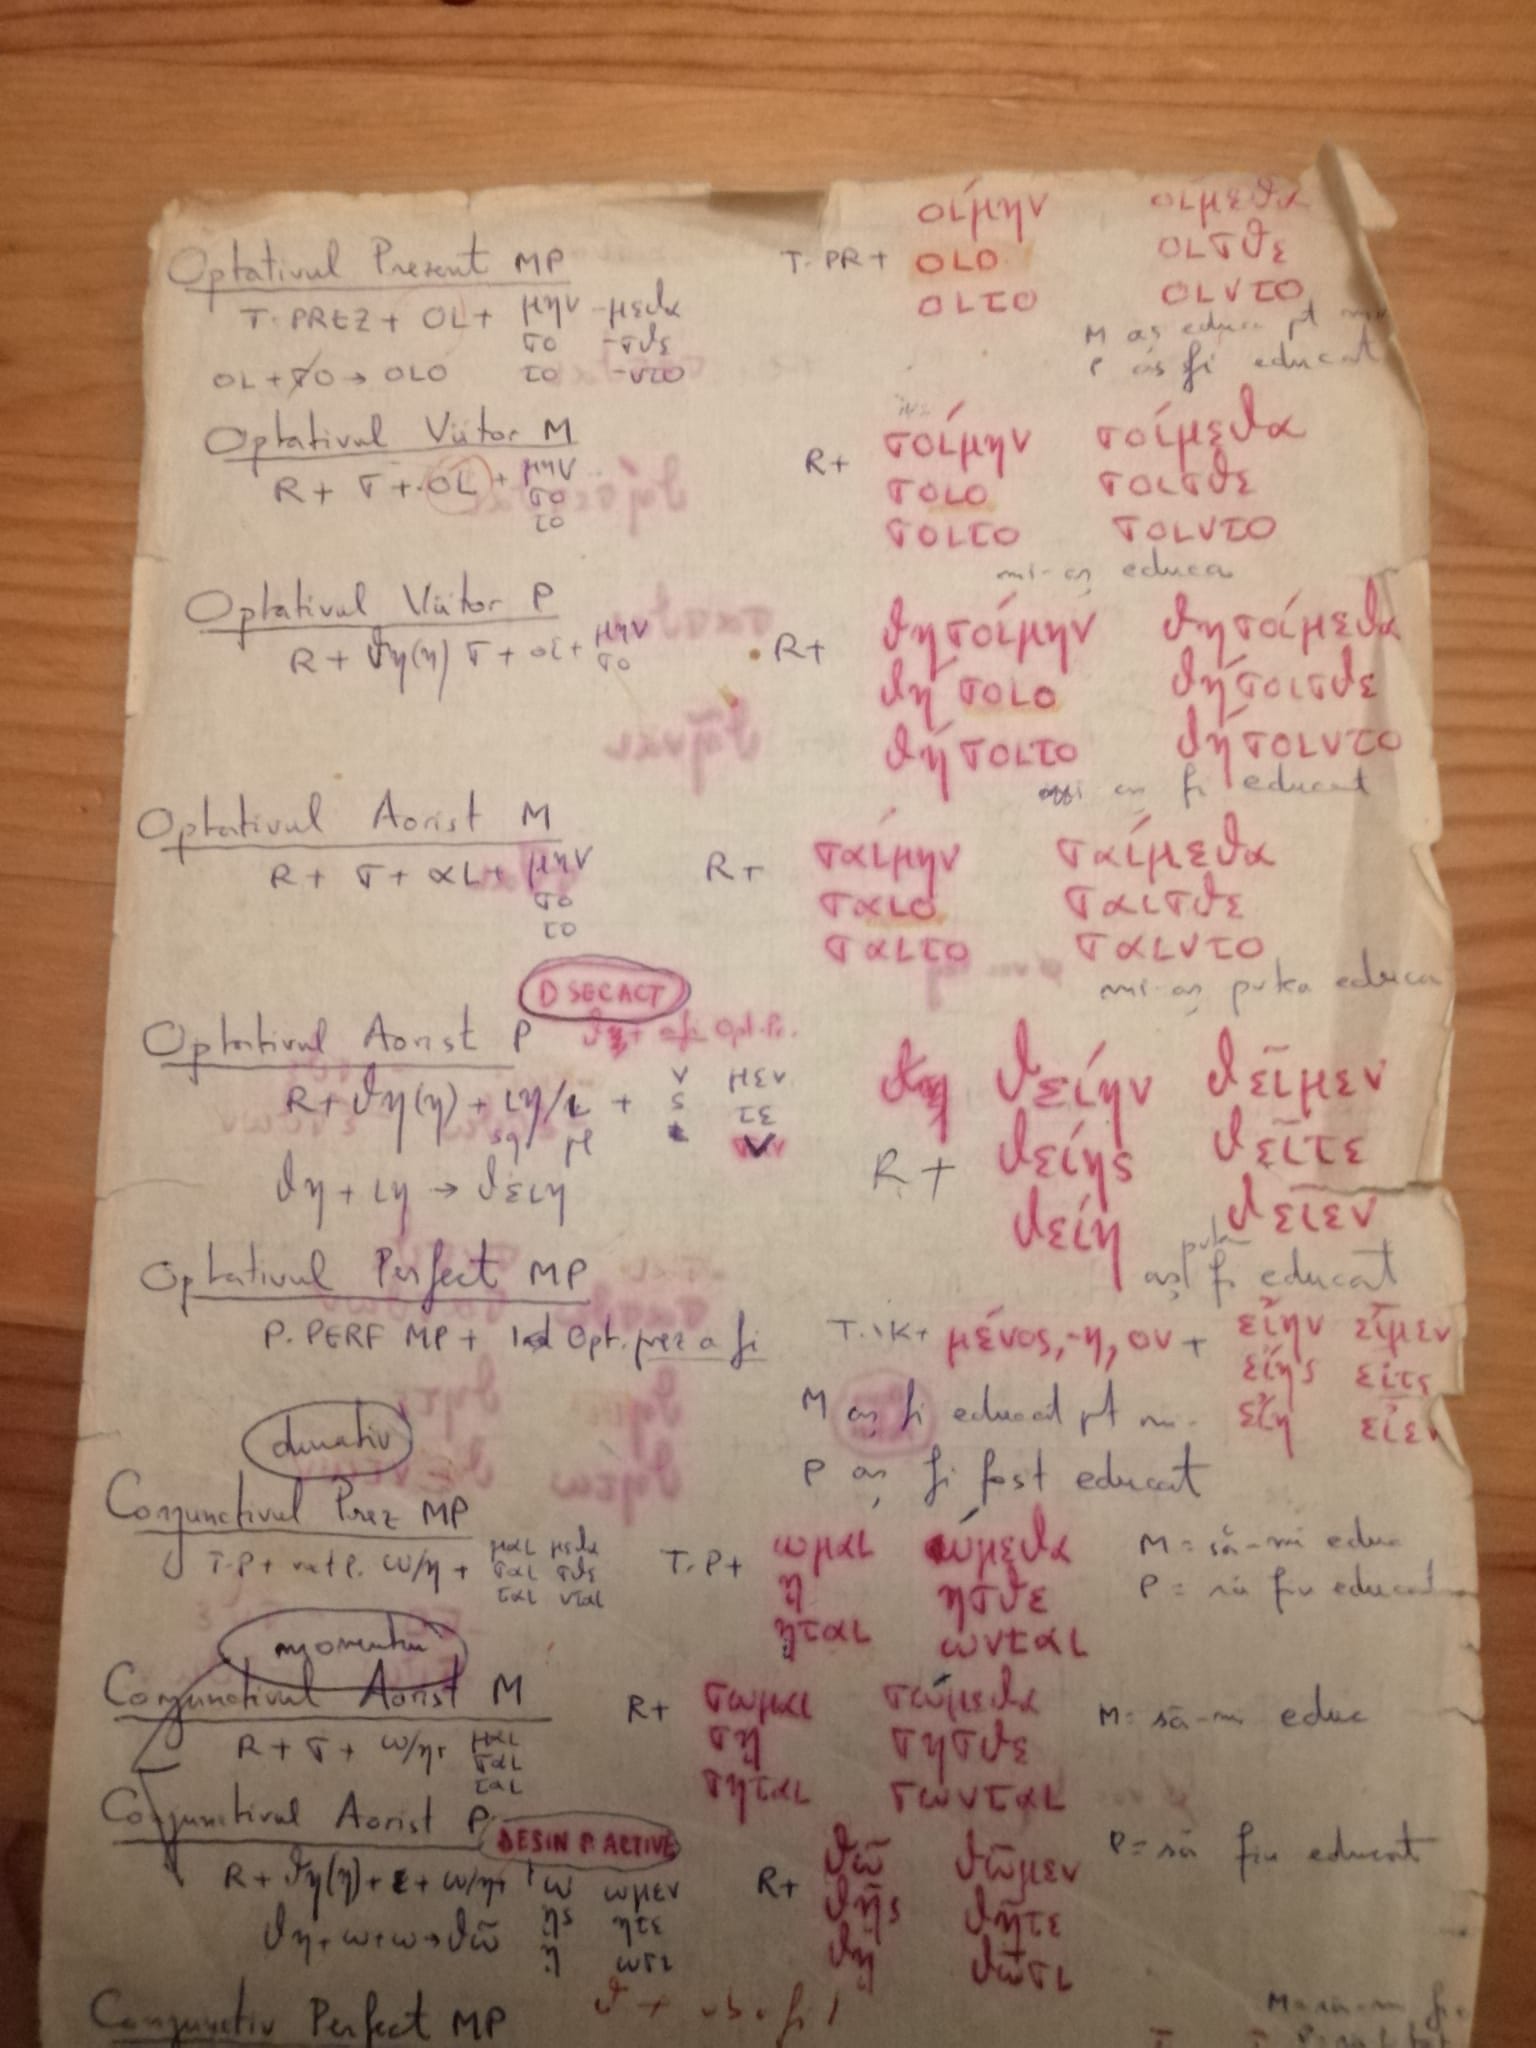 Optativul Prezent MP
T. PREZ + οι + μην -μεθα
σο -σθε
οι + σο → οιο το -ντο
T. PR + οίμην οίμεθα
οιο οισθε
οιτο οιντο
M aș educa pt
P aș fi educat
Optativul Viitor M
R + σ + οι + μην
σο
το
R + σοίμην σοίμεθα
σοιο σοισθε
σοιτο σοιντο
mi-aș educa
Optativul Viitor P
R + θη(η) σ + οι + μην
σο
R + θησοίμην θησοίμεθα
θήσοιο θήσοισθε
θήσοιτο θήσοιντο
aș fi educat
Optativul Aorist M
R + σ + αι + μην
σο
το
R + σαίμην σαίμεθα
σαιο σαισθε
σαιτο σαιντο
mi-aș putea educa
D SEC ACT
Optativul Aorist P
R + θη(η) + ιη/ι + ν μεν
ς τε
sg pl
θη + ιη → θειη
R + θείην θεῖμεν
θείης θεῖτε
θείη θεῖεν
putea
aș fi educat
Optativul Perfect MP
P. PERF MP + Opt. prez a fi
μένος, -η, ον + εἴην εἶμεν
εἴης εἶτε
εἴη εἶεν
M aș fi educat pt
P aș fi fost educat
durativ
Conjunctivul Prez MP
T.P + ω/η + μαι μεθα
σαι σθε
ται νται
T.P + ωμαι ώμεθα
ῃ ησθε
ηται ωνται
M = să-mi educ
P = să fiu educat
momentan
Conjunctivul Aorist M
R + σ + ω/η + μαι
σαι
ται
R + σωμαι σώμεθα
σῃ σησθε
σηται σωνται
M = să-mi educ
Conjunctivul Aorist P
DESIN P. ACTIVE
R + θη(η) + ε + ω/η + ω ωμεν
ης ητε
ῃ ωσι
θη + ω + ω → θῶ
R + θῶ θῶμεν
θῇς θῆτε
θῇ θῶσι
P = să fiu educat
Conjunctiv Perfect MP